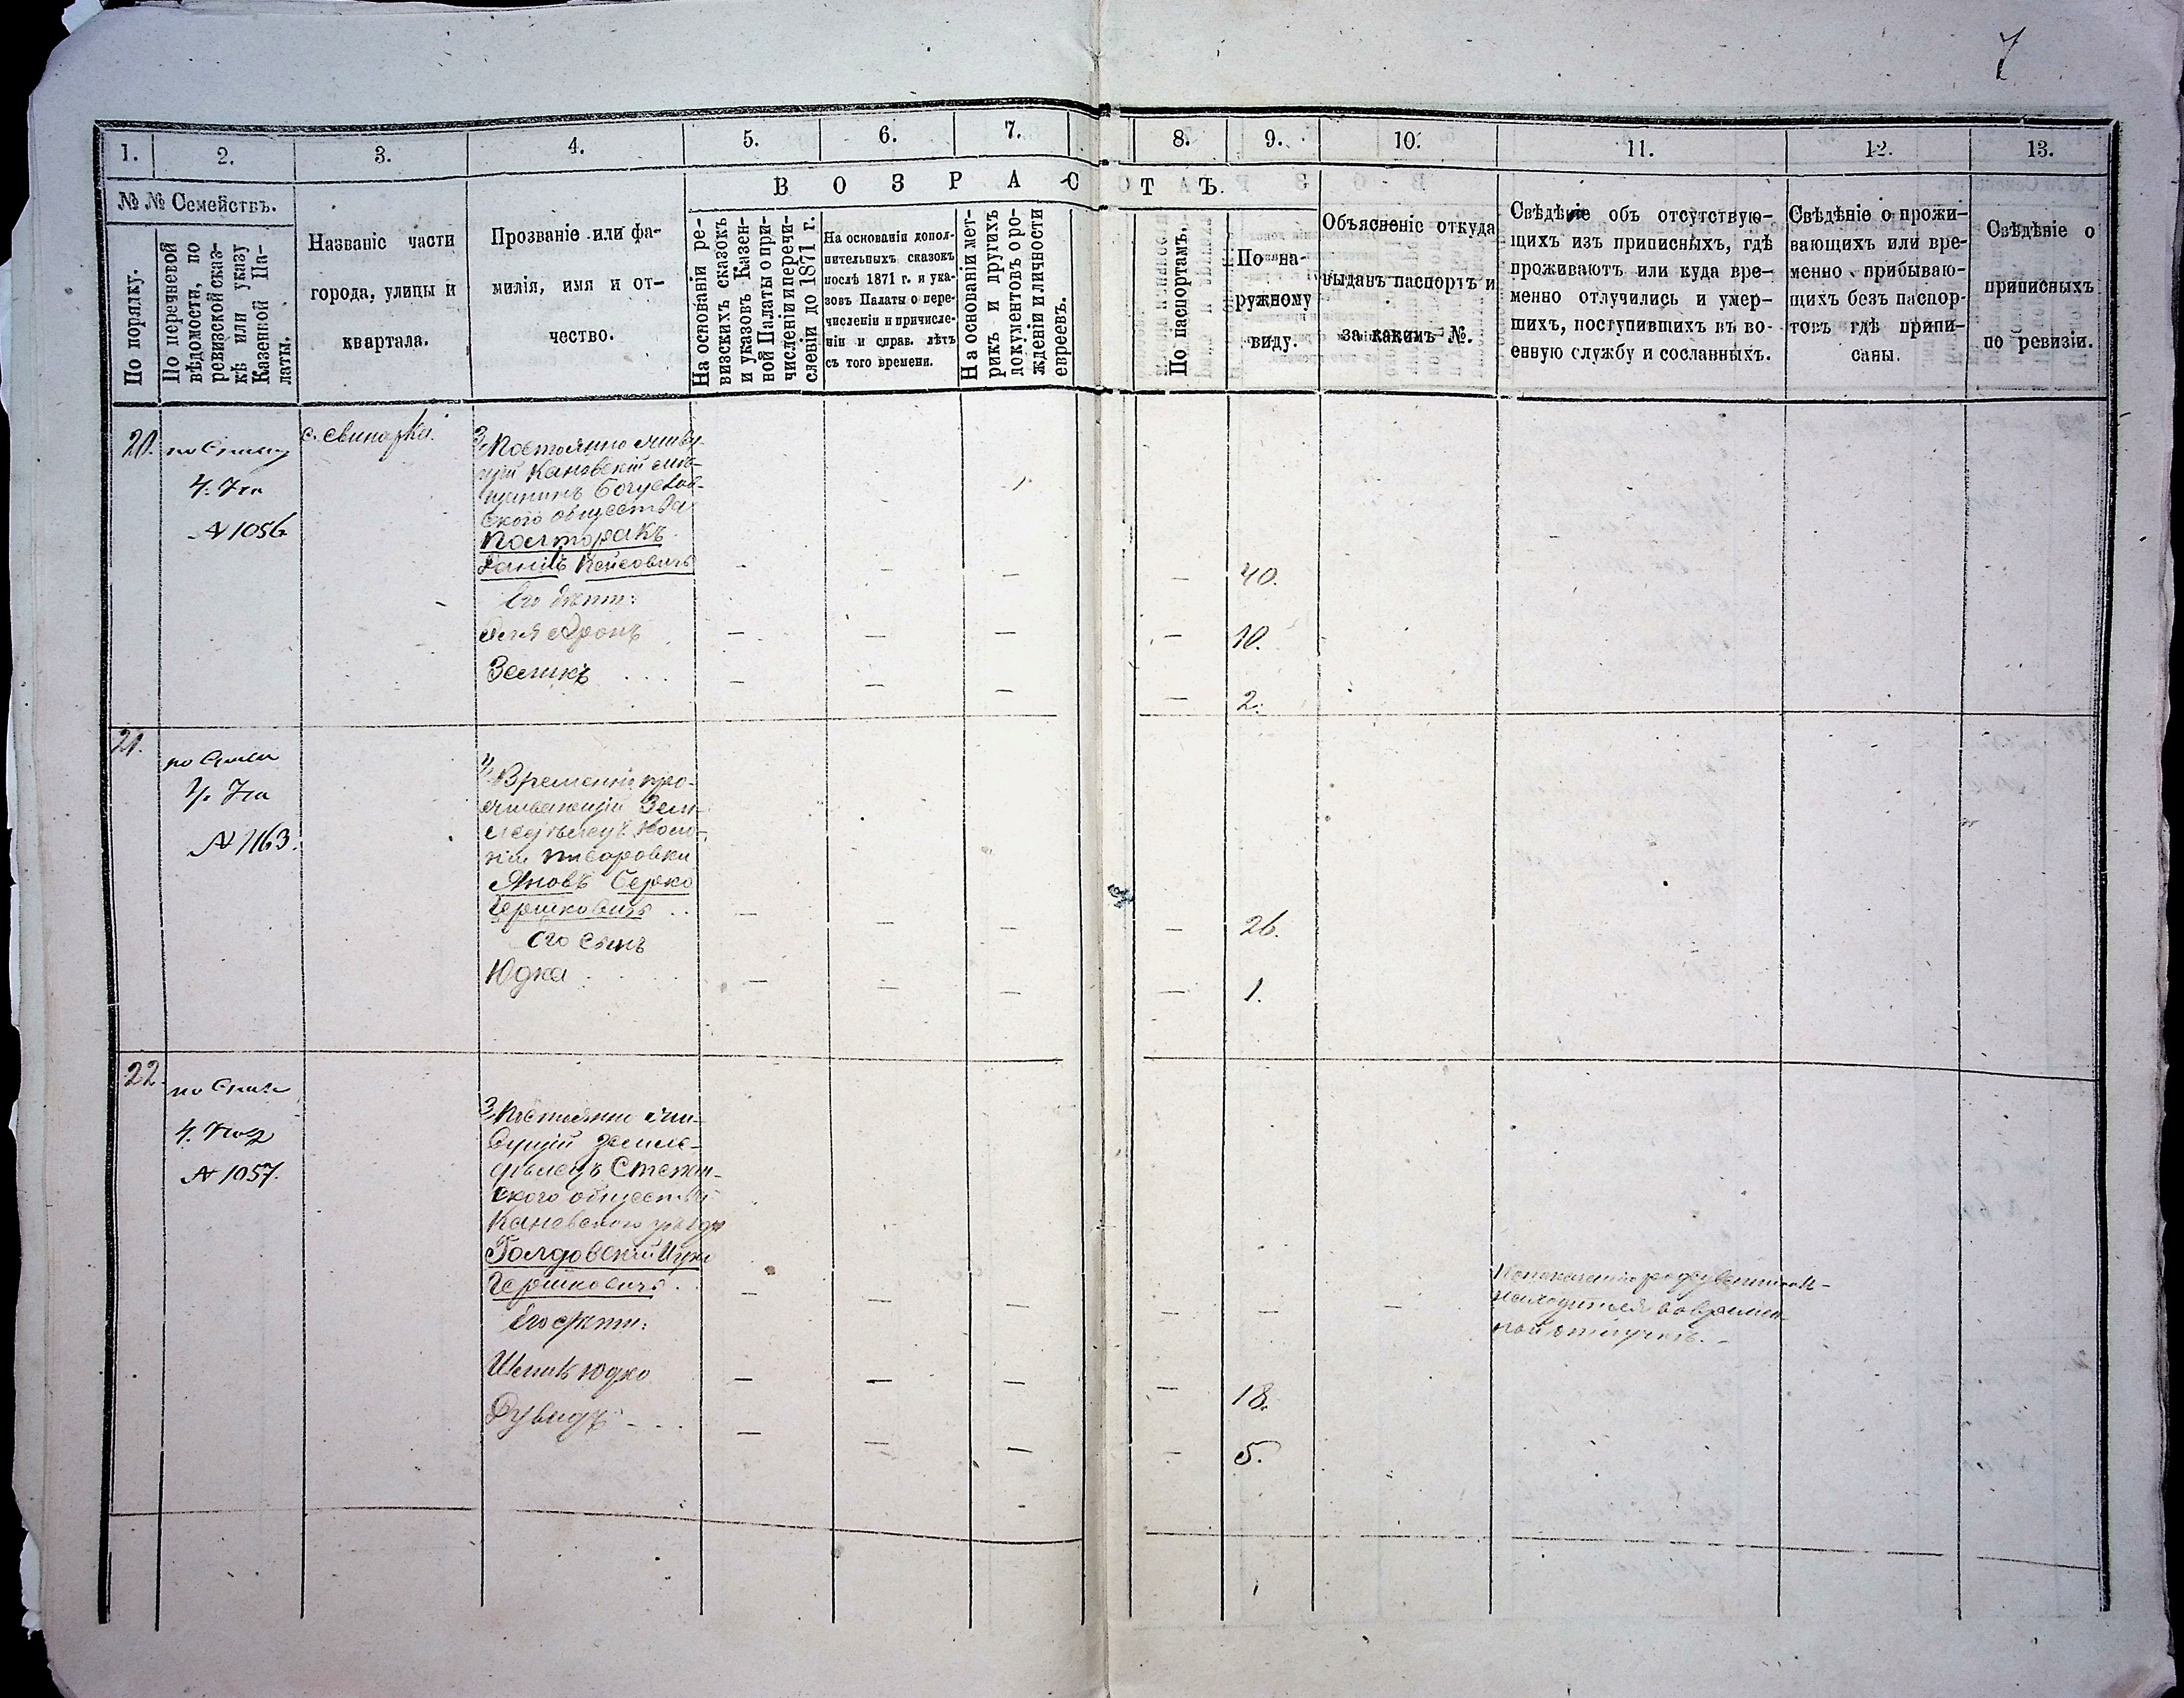 7
1. 2. 3. 4. 5. 6. 7. 8. 9. 10. 11. 12. 13.
№ № Семействъ.
По порядку.
По перечневой
вѣдомости, по
ревизской сказ-
кѣ или указу
Казенной Па-
латы.
Названіе части
города, улицы и
квартала.
Прозваніе или фа-
милія, имя и от-
чество.
В О З Р А С Т Ъ.
На основаніи ре-
визскихъ сказокъ
и указовъ Казен-
ной Палаты о при-
численіи и перечи-
сленіи до 1871 г.
На основаніи допол-
нительныхъ сказокъ
послѣ 1871 г. и ука-
зовъ Палаты о пере-
численіи и причисле-
ніи и справ. лѣтъ
съ того времени.
На основаніи мет-
рикъ и другихъ
документовъ о ро-
жденіи и личности
евреевъ.
По паспортамъ.
По на-
ружному
виду.
Объясненіе откуда
выданъ паспортъ и
за какимъ №.
Свѣдѣніе объ отсутствую-
щихъ изъ приписныхъ, гдѣ
проживаютъ или куда вре-
менно отлучились и умер-
шихъ, поступившихъ въ во-
енную службу и сосланныхъ.
Свѣдѣніе о прожи-
вающихъ или вре-
менно прибываю-
щихъ безъ паспор-
товъ гдѣ припи-
саны.
Свѣдѣніе о
приписныхъ
по ревизіи.
20.
по
№ 1056
с. Свинарка.
Постоянно живу-
щій Каневскій мѣ-
щанинъ Богуслав-
ского общества
Полторакъ
его дѣти:
Аронъ
Зеликъ
— — — — 40.
— — — — 10.
— — — — 2.
21.
по
№ 1163.
Временно про-
живающій Зем-
ледѣлецъ Коло-
ніи
Яновъ Берко
Гершковичъ
его сынъ
Юдка
— — — — 26.
— — — — 1.
22.
по
№ 1057.
Постоянно жи-
вущій земле-
дѣлецъ
ского общества
Каневского уѣзда
Голдовскій Ицко
Гершковичъ
его дѣти:
Юдко
Дувидъ
— — — — — —
находится во времен-
ной отлучкѣ. —
— — — — 18.
— — — — 5.